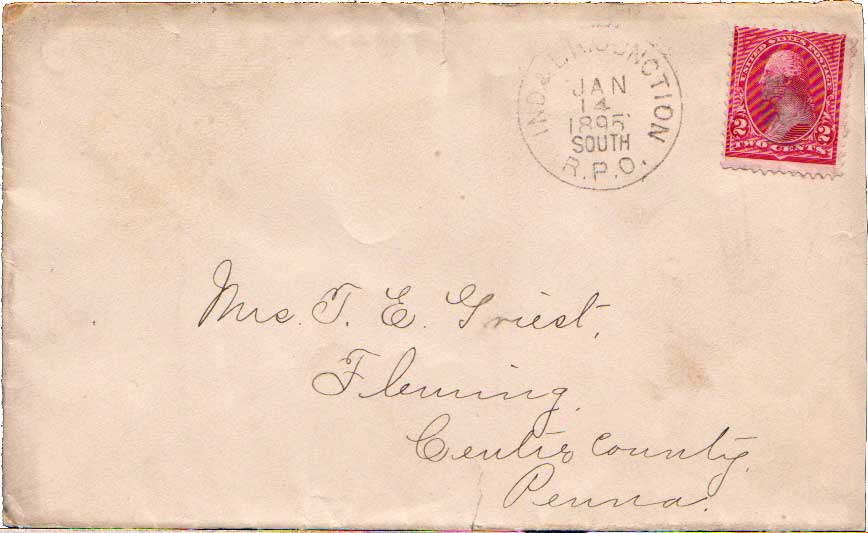 JUNCTION
JAN
14
1895
SOUTH
R.P.O.
UNITED STATES POSTAGE
2 2
TWO CENTS
Mrs. T. E. Griest,
Fleming,
Centre County,
Penna.